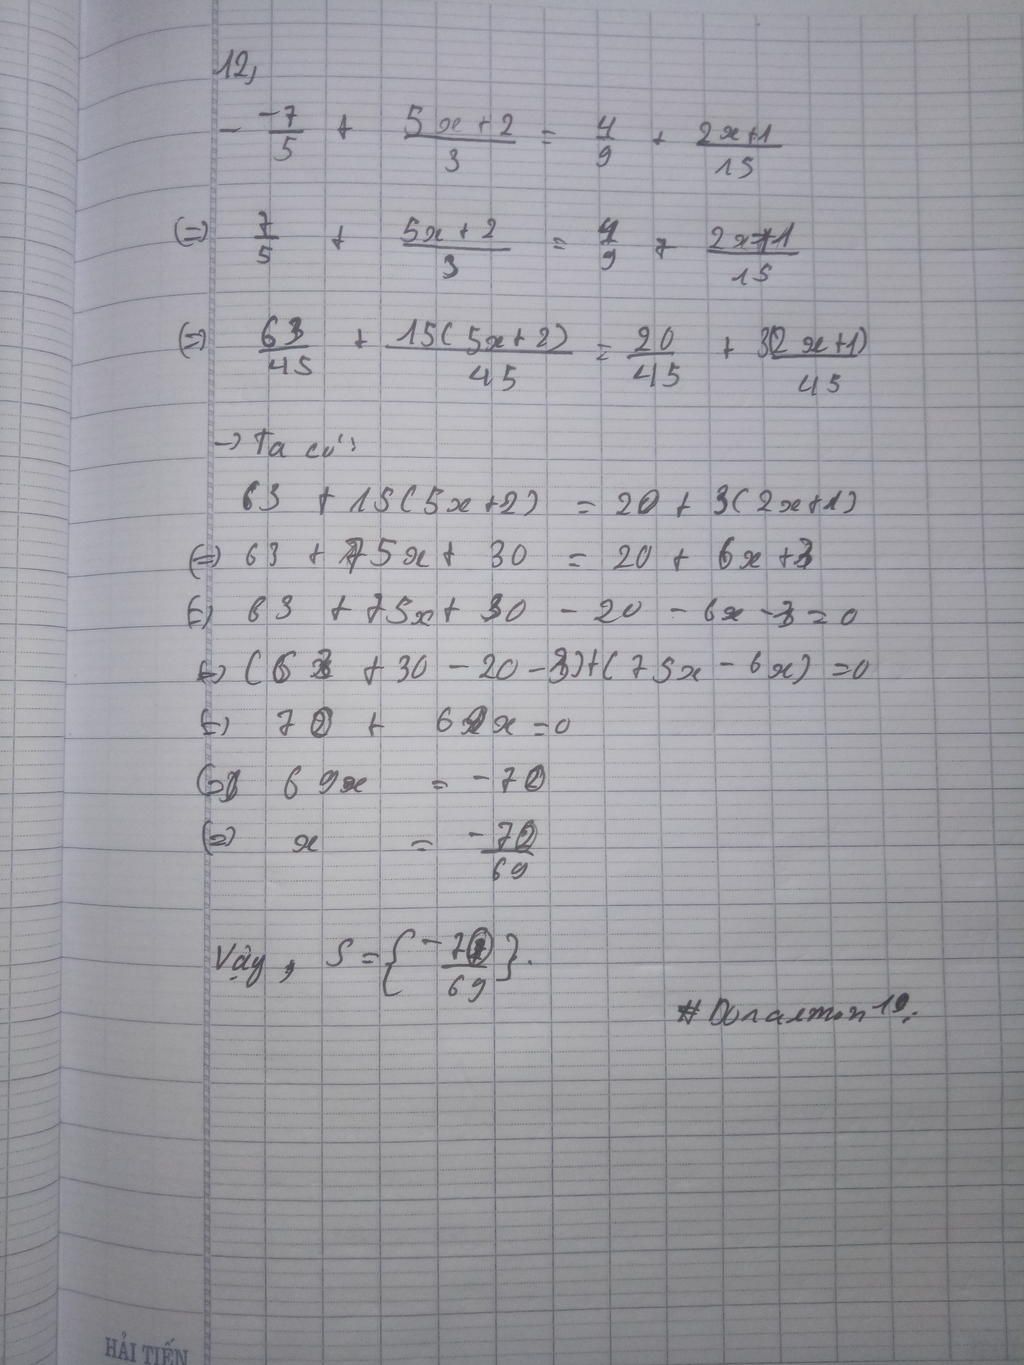 12,
- -7/5 + 5x+2/3 = 4/9 + 2x+1/15
(=) 7/5 + 5x+2/3 = 4/9 + 2x+1/15
(=) 63/45 + 15(5x+2)/45 = 20/45 + 3(2x+1)/45
-> Ta có:
63 + 15(5x+2) = 20 + 3(2x+1)
(=) 63 + 75x + 30 = 20 + 6x + 3
(=) 63 + 75x + 30 - 20 - 6x - 3 = 0
(=) (63 + 30 - 20 - 3) + (75x - 6x) = 0
(=) 70 + 69x = 0
(=) 69x = -70
(=) x = -70/69
Vậy, S = { -70/69 }.
HẢI TIẾN